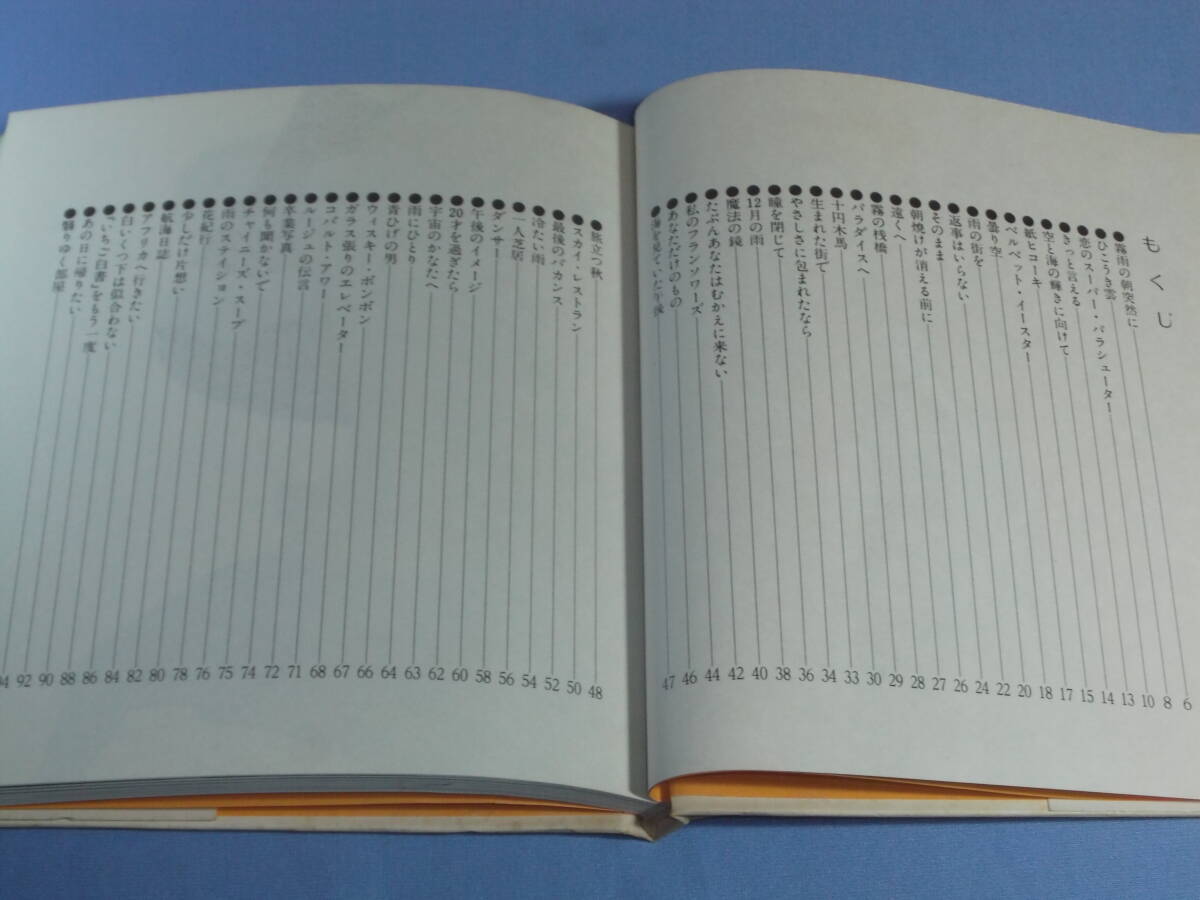 もくじ
●霧雨の朝突然に 6
●ひこうき雲 8
●恋のスーパー・パラシューター 10
●きっと言える 13
●空と海の輝きに向けて 14
●紙ヒコーキ 15
●ベルベット・イースター 17
●曇り空 18
●雨の街を 20
●返事はいらない 22
●そのまま 24
●朝焼けが消える前に 26
●遠くへ 27
●霧の桟橋 28
●パラダイスへ 29
●十円木馬 30
●生まれた街で 33
●やさしさに包まれたなら 34
●瞳を閉じて 36
●12月の雨 38
●魔法の鏡 40
●たぶんあなたはむかえに来ない 42
●私のフランソワーズ 44
●あなただけのもの 46
●海を見ていた午後 47
●旅立つ秋 48
●スカイ・レストラン 50
●最後のバカンス 52
●冷たい雨 54
●一人芝居 56
●ダンサー 58
●午後のイメージ 60
●20才を過ぎたら 62
●宇宙のかなたへ 63
●雨にひとり 64
●青ひげの男 66
●ウィスキー・ボンボン 67
●ガラス張りのエレベーター 68
●コバルト・アワー 71
●ルージュの伝言 72
●卒業写真 74
●何も聞かないで 75
●チャイニーズ・スープ 76
●雨のステイション 78
●花紀行 80
●少しだけ片想い 82
●航海日誌 84
●アフリカへ行きたい 86
●白いくつ下は似合わない 88
●「いちご白書」をもう一度 90
●あの日に帰りたい 92
●翳りゆく部屋 94